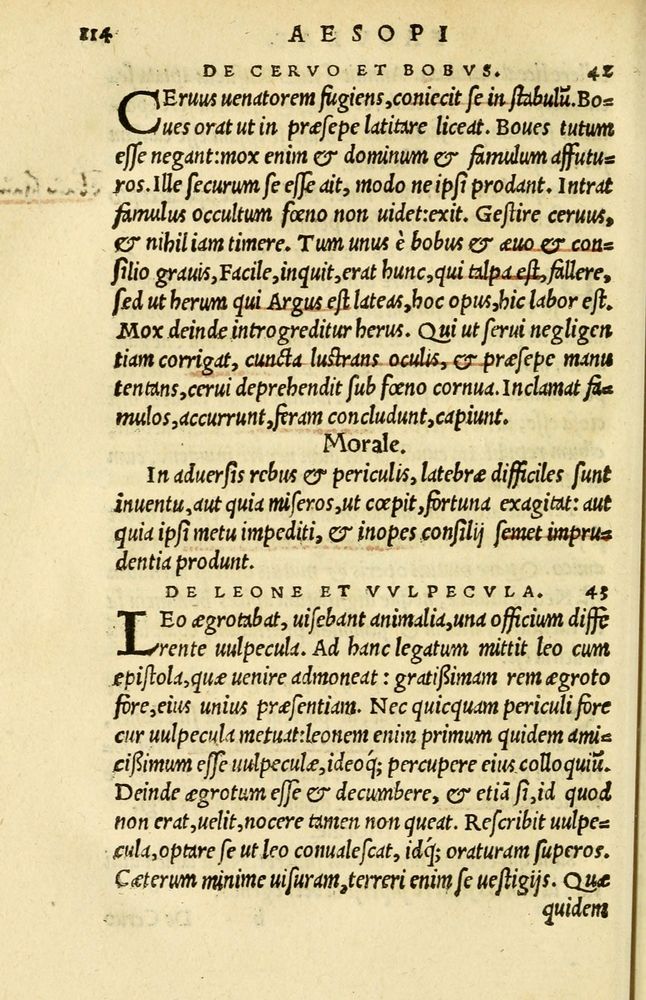 114 AESOPI
DE CERVO ET BOBVS. 42
CEruus uenatorem fugiens,coniecit se in stabulũ.Bo=
ues orat ut in præsepe latitare liceat. Boues tutum
esse negant:mox enim & dominum & famulum affutu=
ros.Ille securum se esse ait, modo ne ipsi prodant. Intrat
famulus occultum fœno non uidet:exit. Gestire ceruus,
& nihil iam timere. Tum unus è bobus & æuo & con=
silio grauis,Facile,inquit,erat hunc,qui talpa est,fallere,
sed ut herum qui Argus est lateas,hoc opus,hic labor est.
Mox deinde introgreditur herus. Qui ut serui negligen
tiam corrigat, cuncta lustrans oculis, & præsepe manu
tentans,cerui deprehendit sub fœno cornua.Inclamat fa=
mulos,accurrunt,feram concludunt,capiunt.
Morale.
In aduersis rebus & periculis, latebræ difficiles sunt
inuentu,aut quia miseros,ut cœpit,fortuna exagitat: aut
quia ipsi metu impediti, & inopes consilij semet impru=
dentia produnt.
DE LEONE ET VVLPECVLA. 43
LEo ægrotabat, uisebant animalia,una officium diffe
rente uulpecula. Ad hanc legatum mittit leo cum
epistola,quæ uenire admoneat : gratißimam rem ægroto
fore,eius unius præsentiam. Nec quicquam periculi fore
cur uulpecula metuat:leonem enim primum quidem ami=
cißimum esse uulpeculæ,ideoq́; percupere eius colloquiũ.
Deinde ægrotum esse & decumbere, & etiã si,id quod
non erat,uelit,nocere tamen non queat. Rescribit uulpe=
cula,optare se ut leo conualescat, idq́; oraturam superos.
Cæterum minime uisuram,terreri enim se uestigijs. Quæ
quidem